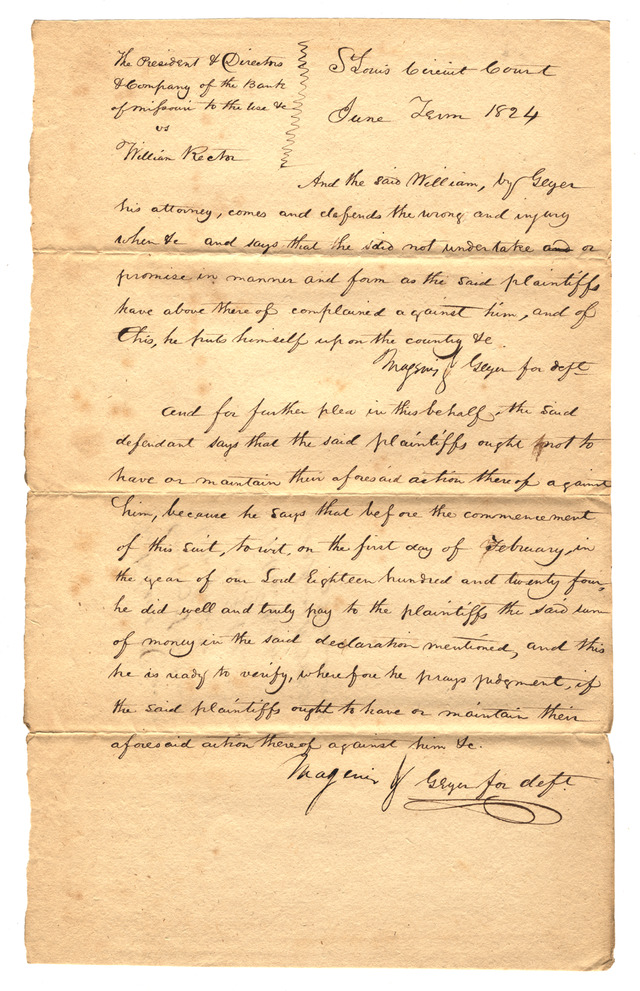 The President & Directors
& Company of the Bank
of missouri to the use &c
vs
William Rector
St Louis Circuit Court
June Term 1824
And the said William, by Geyer
his attorney, comes and defends the wrong and injury
when &c and says that he did not undertake and or
promise in manner and form as the said plaintiffs
have above thereof complained against him, and of
this, he puts himself upon the country &c
Magenis & Geyer for deft
And for further plea in this behalf, the said
defendant says that the said plaintiffs ought not to
have or maintain their aforesaid action thereof against
him, because he says that before the commencement
of this suit, to wit, on the first day of February, in
the year of our Lord Eighteen hundred and twenty four,
he did well and truly pay to the plaintiffs the said sum
of money in the said declaration mentioned, and this
he is ready to verify, wherefore he prays judgment, if
the said plaintiffs ought to have or maintain their
aforesaid action thereof against him &c.
Magenis & Geyer for deft.